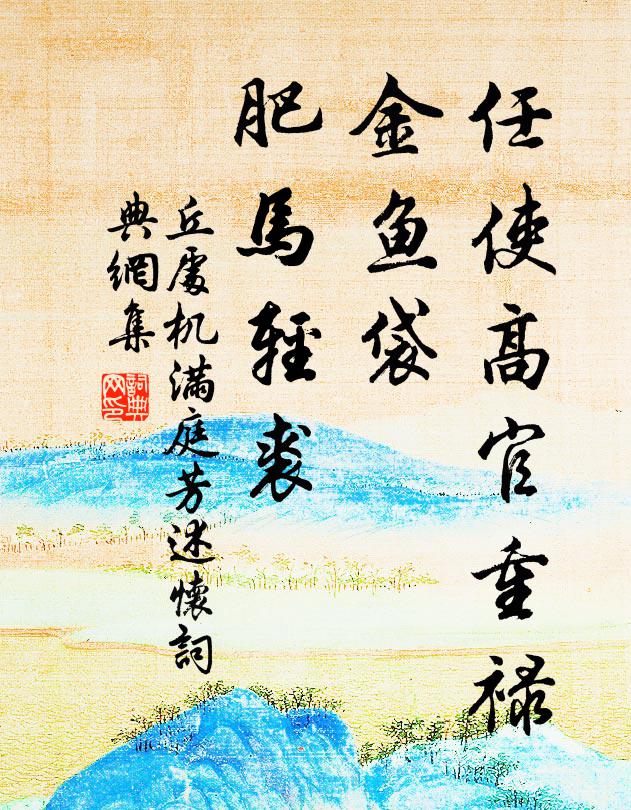 任使高官重禄
金鱼袋
肥馬輕裘
丘處机满庭芳述懷詞
典網集
詞典网印